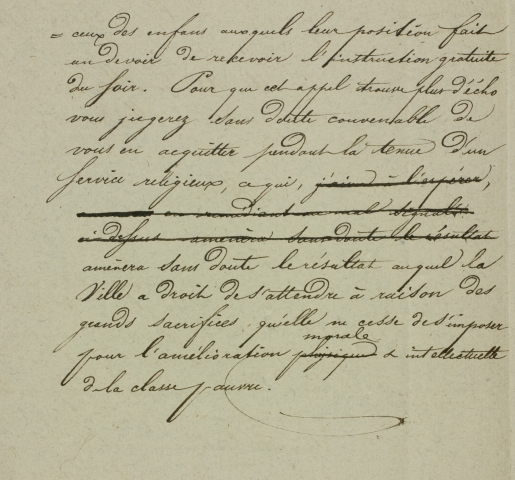 = ceux des enfans auxquels leur position fait
un devoir de recevoir l'instruction gratuite
du soir. Pour que cet appel trouve plus d'écho
vous jugerez sans doute convenable de
vous en acquitter pendant la tenue d'un
service religieux, ce qui, j'aime à l'espérer,
en remédiant au mal signalé
ci dessus amènera sans doute le résultat
amènera sans doute le résultat auquel la
Ville a droit de s'attendre à raison des
grands sacrifices qu'elle ne cesse de s'imposer
morale
pour l'amélioration physique & intellectuelle
de la classe pauvre.